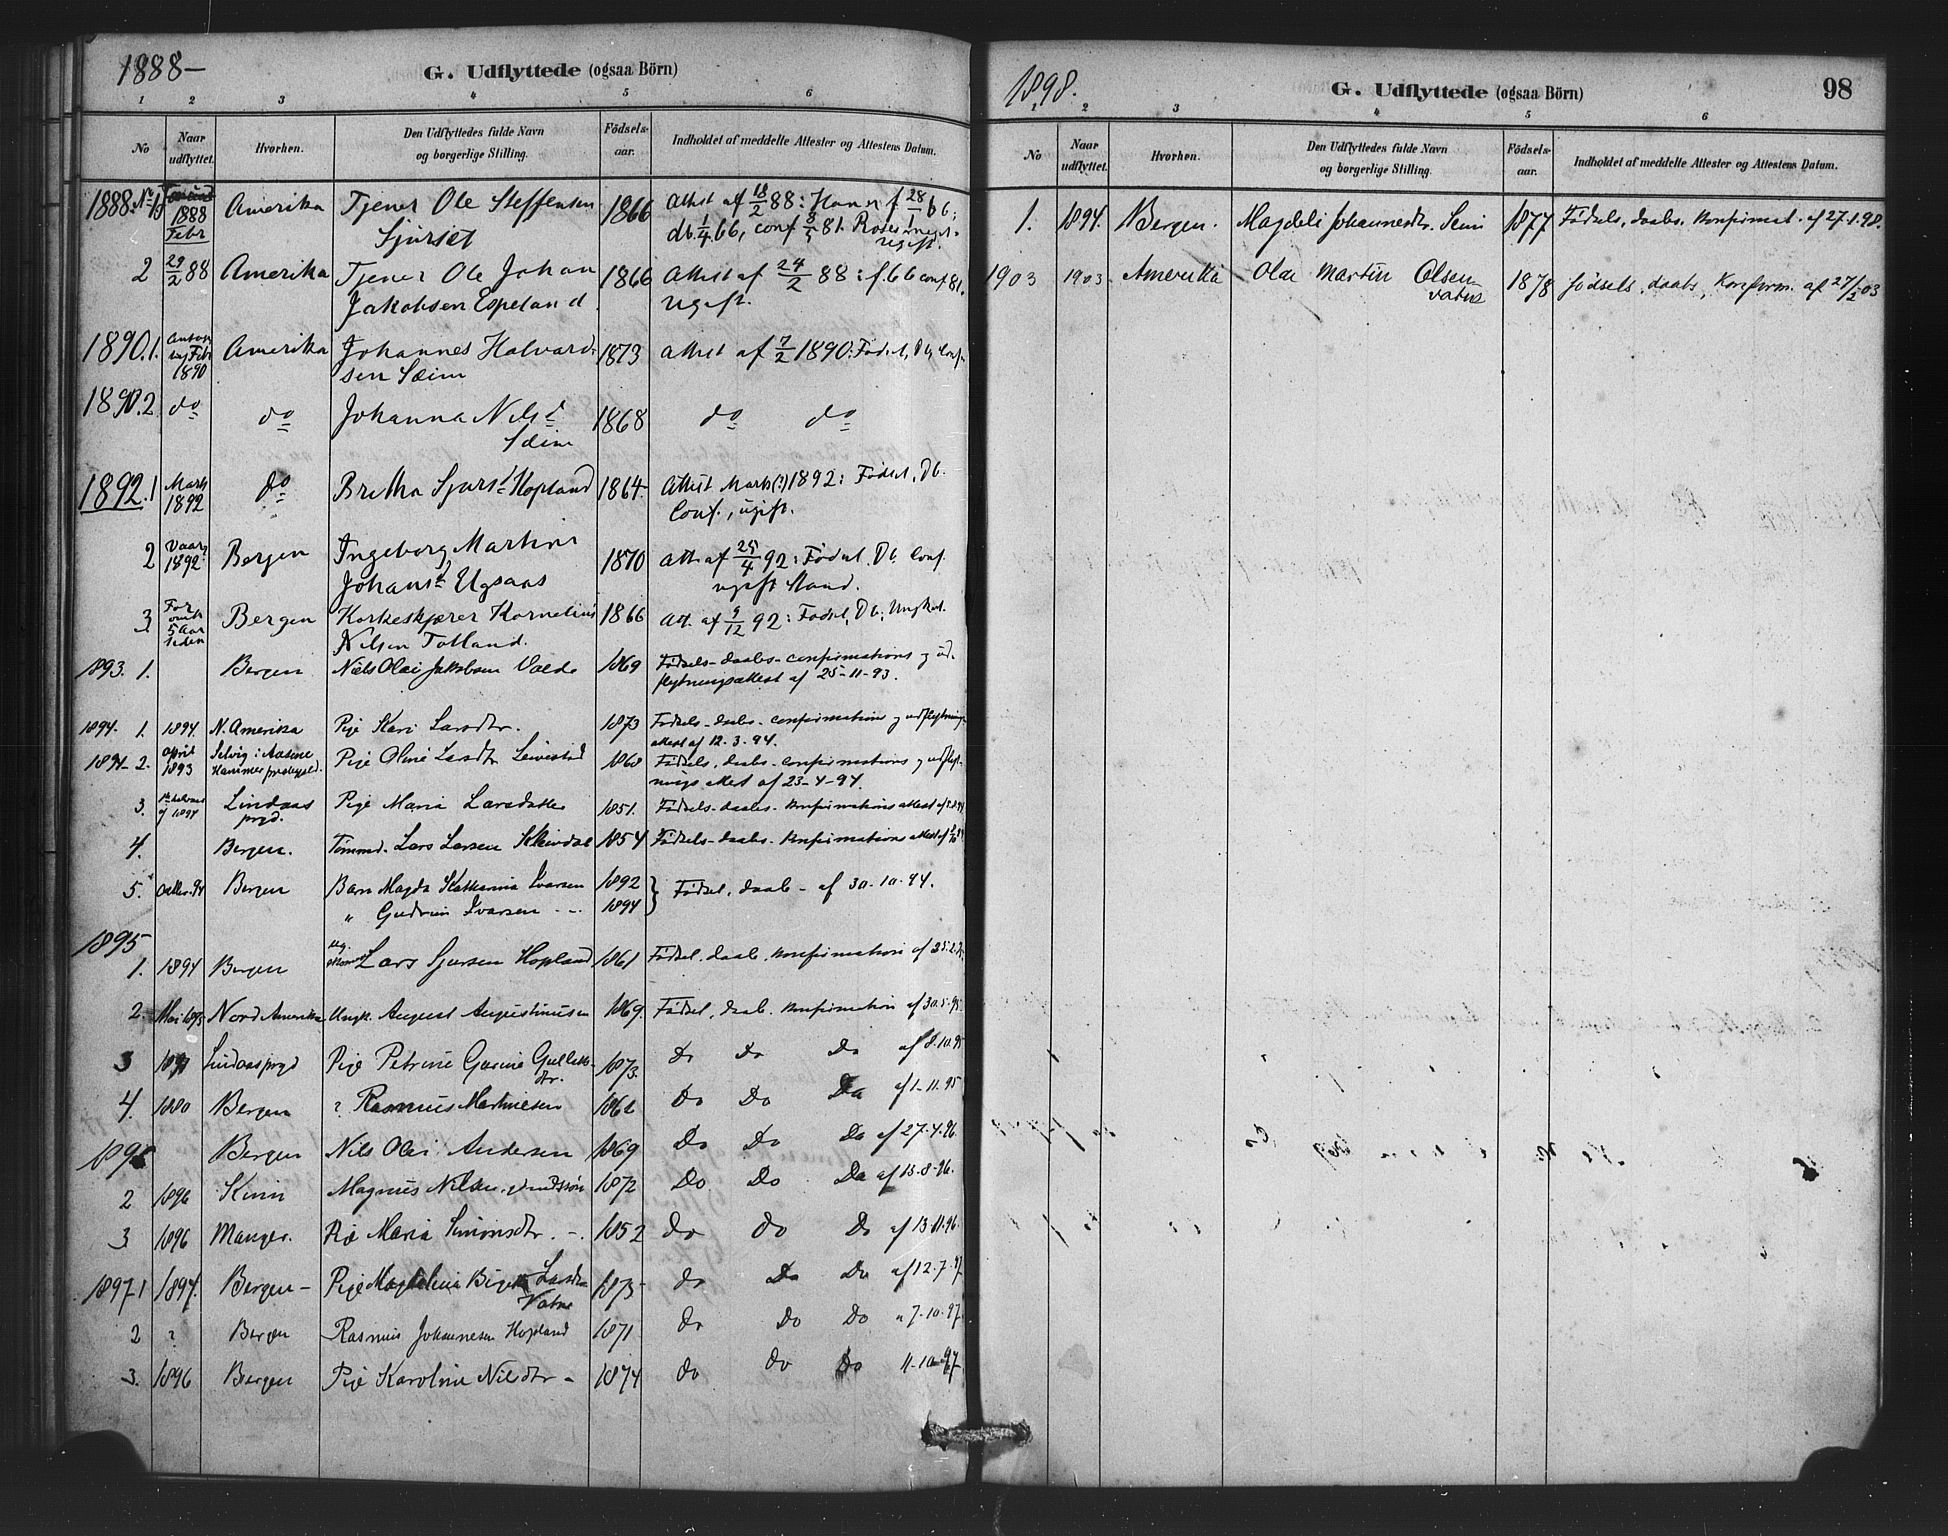 1888-
G. Udflyttede (ogsaa Börn)
1 2 3 4 5 6
No Naar udflyttet. Hvorhen. Den Udflyttedes fulde Navn og borgerlige Stilling. Fødsels-aar. Indholdet af meddelte Attester og Attestens Datum.
1888. No 1 1888 Febr Amerika Tjener Ole Steffensen 1866 Attest af 18/2 88: Han er f 28/1 66;
Sjurset db. 1/4 66, conf 81. ugift.
2 29/2 88 Amerika Tjener Ole Johan 1866 Attest af 24/2 88: f. 66 conf 81.
Jakobsen Espeland ugift.
1890.1. Febr 1890 Amerika Johannes Halvard- 1873 Attest af 7/2 1890: Fødsel, Db, Conf.
sen Sæim
1890.2 do do Johanna Nilsd 1868 do do
Sæim
1892.1 Marts 1892 do Bretha Sjursd Hopland 1864 Attest Marts(?) 1892: Fødsel, Db.
Conf., ugift.
2 Vaar 1892 Bergen Ingeborg Martini 1870 Att. af 25/4 92: Fødsel, Db. Conf.
Johansd Ugsaas ugift Stand.
3. For omtr 5 Aar siden Bergen Korkeskjærer Kornelius 1866 Att. af 9/12 92: Fødsel, Db. Ungkarl.
Nilsen Totland.
1893. 1. Bergen Niels Olai Jakobsen 1869 Fødsels- daabs- confirmations og ud-
flytningsattest af 25-11-93.
1894. 1. 1894. N. Amerika Pige Kari Larsdtr. 1873 Fødsels- daabs- confirmations og udflytnings-
attest af 12.3.94.
1894- 2. april 1893 Hammer prestegjeld. Pige Oline Larsdtr 1868 Fødsels, daabs- confirmations og udflyt-
nings attest af 23-4-94.
3. 1894 Lindaas prgd. Pige Maria Larsdatter 1851. Fødsels- daabs- konfirmations attest af
4. Bergen. Tømmd. Lars Larsen 1854 Fødsels- daabs- konfirmations attest af
5. Bergen Barn Magda Katharina Ivarsen 1892 Fødsel, daab- af 30-10-94.
" Gudrun Ivarsen -- 1894
1895
1. 1894 Bergen Lars Sjursen Hopland 1861 Fødsel, daab, konfirmation af
2. Mai 1895 Nord Amerika Ungk. August Augustinusen 1869. Fødsel, daab, konfirmation af 30.5.95.
3 Lindaas prgd Pige Petrine Gurine 1873. Do Do Do af 8.10.95
dtr.
4. 1880 Bergen ? Rasmus Martinesen 1862 Do Do Do af 1-11.95
1896 Bergen Nils Olai Andersen 1869 Do Do Do af 27.4.96.
2 1896 Kinn Magnus Nilsen 1872 Do Do Do af 13-8-96.
3 1896 Manger. Pige Maria Simonsdtr. -. 1852 Do Do Do af 13.11.96.
1897.1 1897. Bergen- Pige Magdalina Larsdtr 1873- Do Do Do af 12.7.97.
Vatne
2 ? Bergen Rasmus Johannesen Hopland 1871 Do Do Do " 7-10-97.
3. 1896 Bergen Pige Karolina Nilsdtr- 1874 Do Do Do 11-10-97.
1898.
G. Udflyttede (ogsaa Börn)
98
1. 2 3 4 5 6
No Naar udflyttet. Hvorhen. Den Udflyttedes fulde Navn og borgerlige Stilling. Fødsels-aar. Indholdet af meddelte Attester og Attestens Datum.
1. 1894. Bergen. Magdeli Johannesdtr. Seim 1877 Fødsels, daabs, konfirmat. af 27.1.98.
1903 1903 Amerika Olai Martin Olsen 1878 fødsels, daabs, Konfirm. af 27/2 03